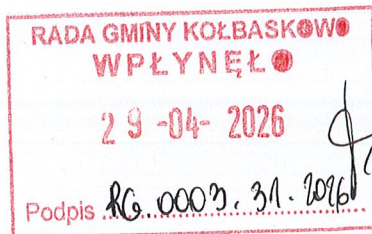 RADA GMINY KOŁBASKOWO
WPŁYNĘŁO
29 -04- 2026
Podpis RG.0003.31.2026